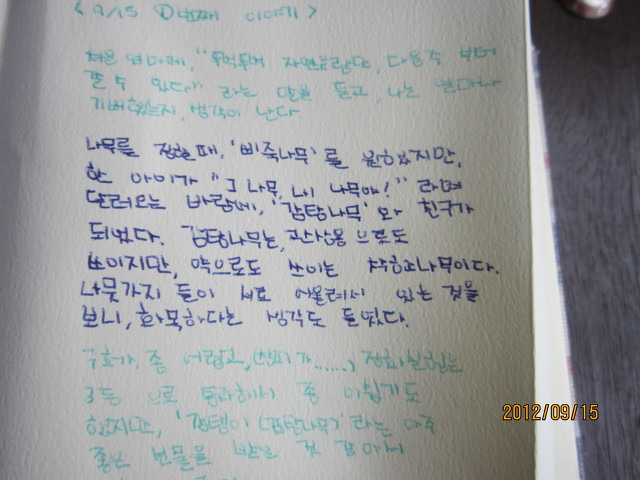 < 9/15 ①번째 이야기 >
처음 엄마께, " 자연놀란다, 다음주 부터
갈 수 있다" 라는 말을 듣고, 나는 얼마나
기뻐했는지, 생각이 난다.
나무를 정할 때, '삐죽나무'를 원하였지만,
한 아이가 "그 나무, 내 나무야!" 라며
달려오는 바람에, '감탕나무'와 친구가
되었다. 감탕나무는, 관상용 으로도
쓰이지만, 약으로도 쓰이는 나무이다.
나뭇가지 들이 서로 어울려서 있는 것을
보니, 화목하다는 생각도 들었다.
구호가, 좀 어렵고, ......,
3등 으로 통과해서 좀 아쉽기도
했지만, '감탱이 (감탕나무)'라는 아주
좋은 선물을 받은 것 같아서
2012/09/15